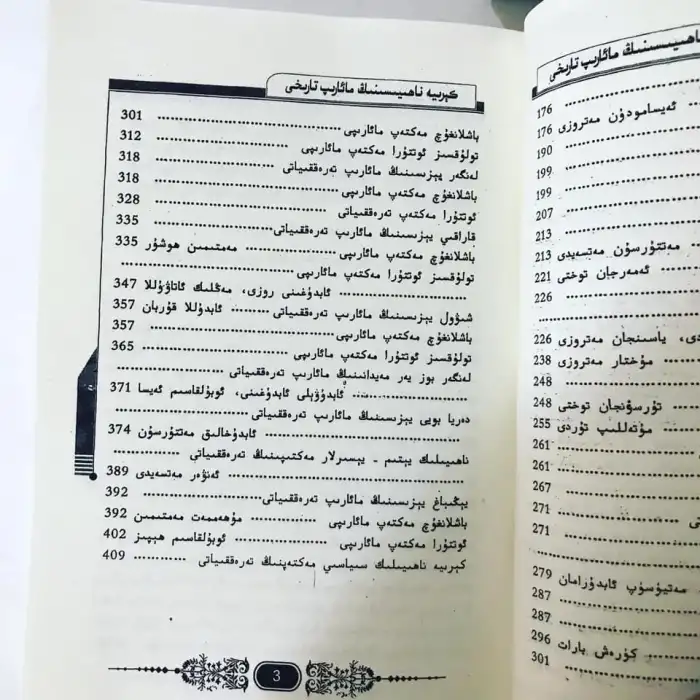 كېرىيە ناھىيىسىنىڭ مائارىپ تارىخى
باشلانغۇچ مەكتەپ مائارىپى ........................ 301
تولۇقسىز ئوتتۇرا مەكتەپ مائارىپى ................ 312
لەنگەر يېزىسىنىڭ مائارىپ تەرەققىياتى ............ 318
باشلانغۇچ مەكتەپ مائارىپى ........................ 318
ئوتتۇرا مەكتەپ تەرەققىياتى ........................ 328
قاراقىي يېزىسىنىڭ مائارىپ تەرەققىياتى ............ 335
باشلانغۇچ مەكتەپ مائارىپى ............ مەمتىمىن ھوشۇر 335
تولۇقسىز ئوتتۇرا مەكتەپ مائارىپى ........................
........................ ئابدۇغېنى روزى، مەڭلىك ئاتاۋۇللا 347
شىۋول يېزىسىنىڭ مائارىپ تەرەققىياتى ......... ئابدۇللا قۇربان 357
باشلانغۇچ مەكتەپ مائارىپى ........................ 357
تولۇقسىز ئوتتۇرا مەكتەپ مائارىپى ................ 365
لەنگەر بوز يەر مەيدانىنىڭ مائارىپ تەرەققىياتى ............
............ ئابدۇۋېلى ئابدۇغېنى، ئوبۇلقاسىم ئەيسا 371
دەريا بويى يېزىسىنىڭ مائارىپ تەرەققىياتى ................
........................ ئابدۇخالىق مەتتۇرسۇن 374
ناھىيىلىك يېتىم - يېسىرلار مەكتىپىنىڭ تەرەققىياتى .........
........................ ئەنۋەر مەتسەيدى 389
يېڭىباغ يېزىسىنىڭ مائارىپ تەرەققىياتى ............ 392
باشلانغۇچ مەكتەپ مائارىپى ............ مۇھەممەت مەمتىمىن 392
ئوتتۇرا مەكتەپ مائارىپى ............ ئوبۇلقاسىم ھېپىز 402
كېرىيە ناھىيىلىك سىياسىي مەكتەپنىڭ تەرەققىياتى ............ 409
3
ناھىيىسىنىڭ مائارىپ تارىخى
176
ئەيسامودۇن مەتروزى 176
190
199
199
207
213
مەتتۇرسۇن مەتسەيدى 213
ئەمەرجان توختى 221
226
ياسىنجان مەتروزى 226
مۇختار مەتروزى 238
248
تۇرسۇنجان توختى 248
مۇتەللىپ تۇردى 255
261
261
267
271
271
مەتيۈسۈپ ئابدۇرامان 279
287
287
كۈرەش بارات 296
301